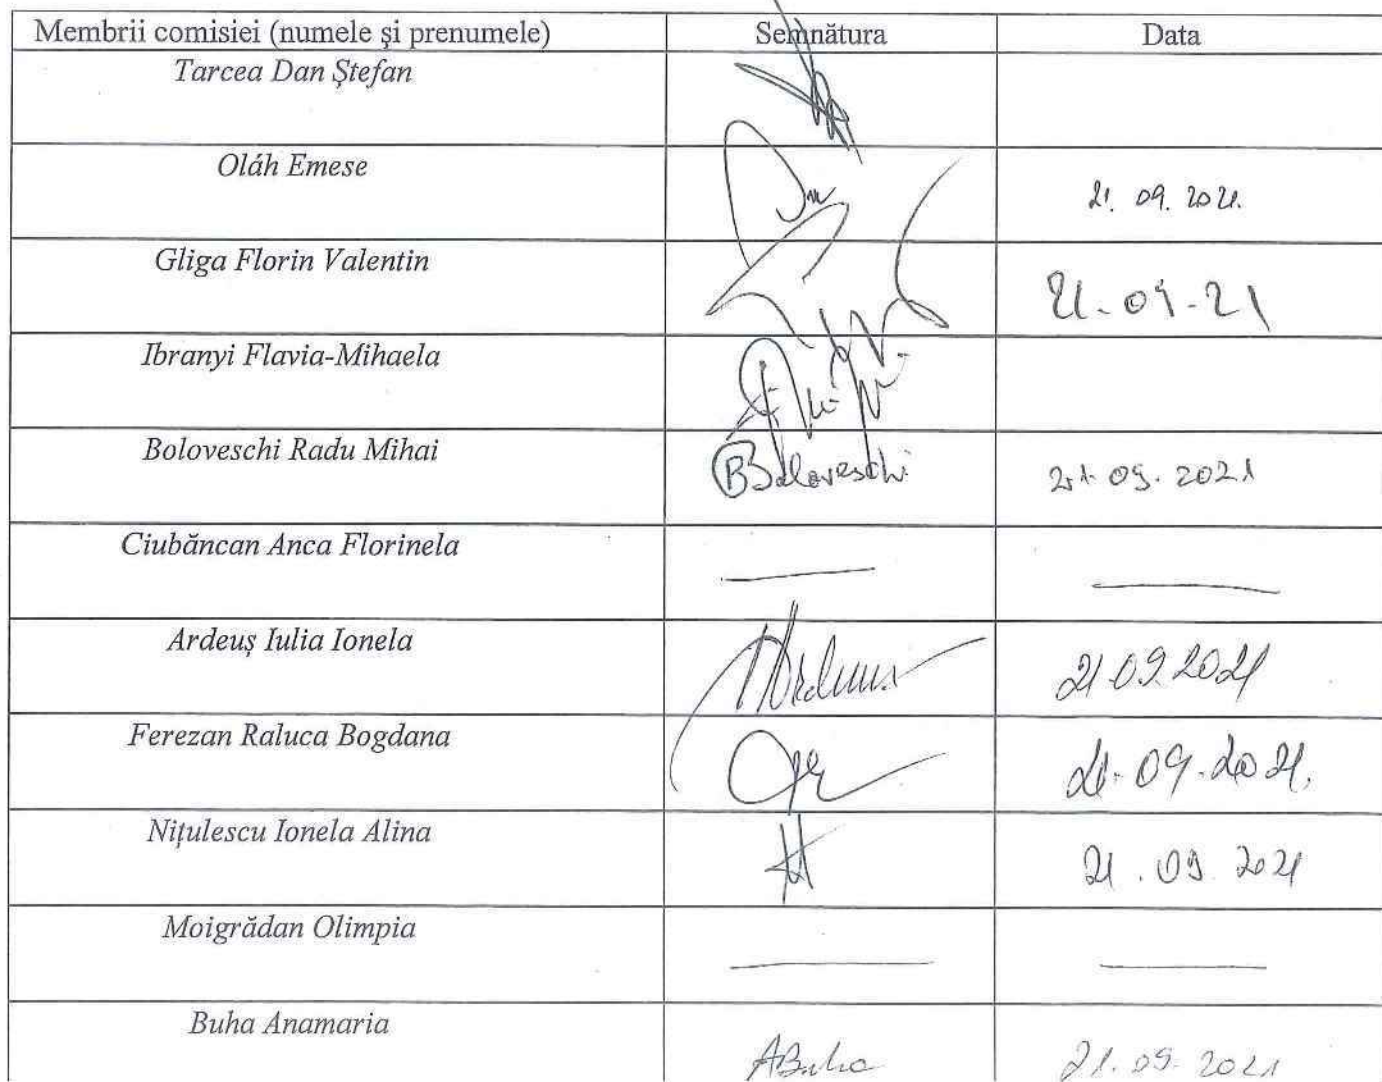 Membrii comisiei (numele și prenumele) Semnătura Data
Tarcea Dan Ștefan
Oláh Emese 21. 09. 2021.
Gliga Florin Valentin 21-09-21
Ibranyi Flavia-Mihaela
Boloveschi Radu Mihai Boloveschi 21.09.2021
Ciubăncan Anca Florinela
Ardeuș Iulia Ionela 21.09.2021
Ferezan Raluca Bogdana 21.09.2021.
Nițulescu Ionela Alina 21.09.2021
Moigrădan Olimpia
Buha Anamaria ABuha 21.09.2021